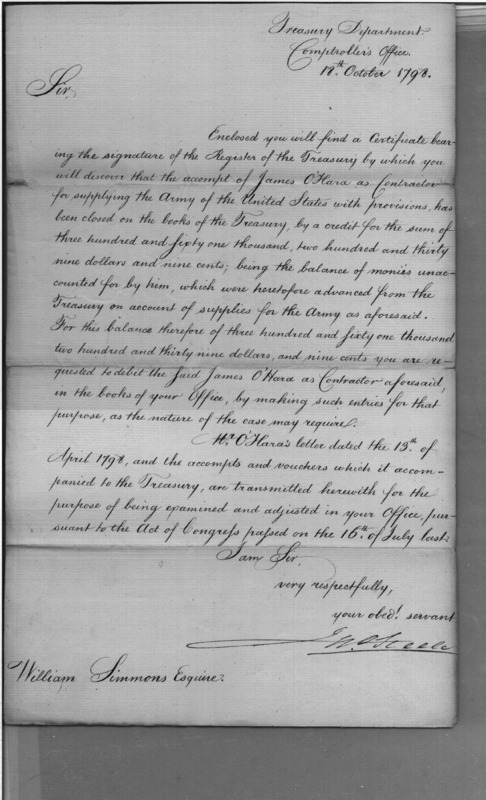 Treasury Department.
Comptroller's Office.
12th October 1798.
Sir,
Enclosed you will find a Certificate bear-
ing the signature of the Register of the Treasury by which you
will discover that the accompt of James O'Hara as Contractor
for supplying the Army of the United States with provisions, has
been closed on the books of the Treasury, by a credit for the sum of
three hundred and sixty one thousand, two hundred and thirty
nine dollars and nine cents; being the balance of monies unac-
counted for by him, which were heretofore advanced from the
Treasury on account of supplies for the Army as aforesaid.
For this balance therefore of three hundred and sixty one thousand
two hundred and thirty nine dollars, and nine cents you are re-
quested to debit the said James O'Hara as Contractor aforesaid,
in the books of your Office, by making such entries for that
purpose, as the nature of the case may require.
Mr. O'Hara's letter dated the 13th of
April 1798, and the accompts and vouchers which it accom-
panied to the Treasury, are transmitted herewith for the
purpose of being examined and adjusted in your Office, pur-
suant to the Act of Congress passed on the 16th of July last.
I am Sir,
very respectfully,
your obedt. servant
Jno. Steele
William Simmons Esquire.